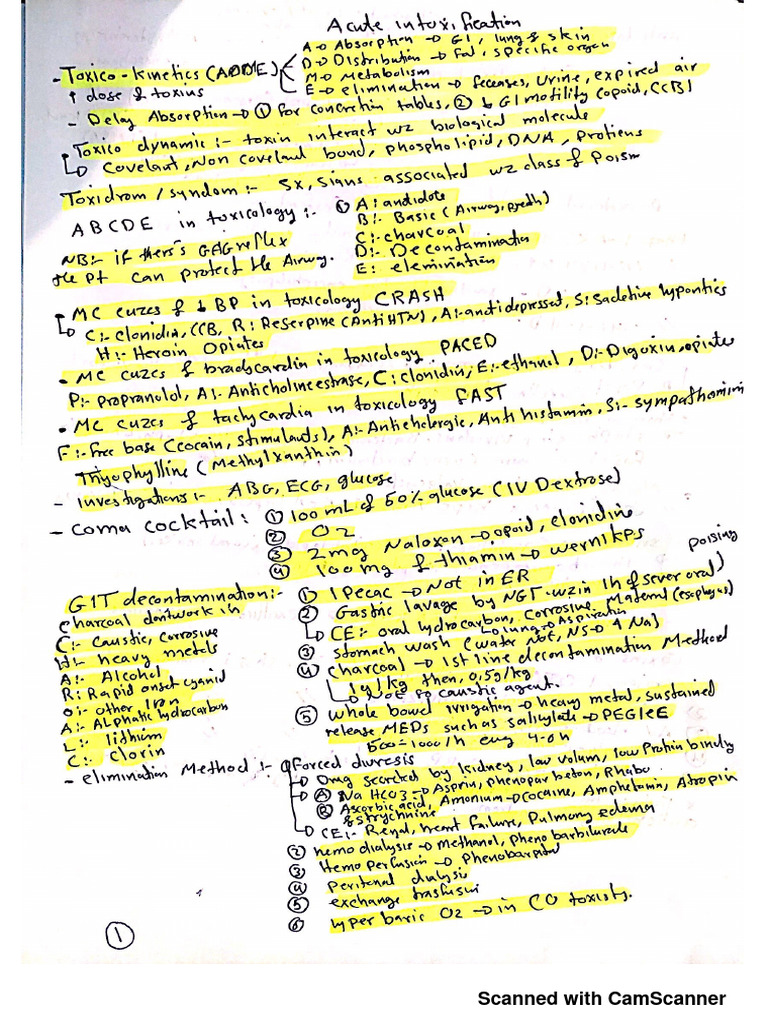 Acute intoxification
- Toxico-kinetics (ADME)
A → Absorption → GI, lung & skin
D → Distribution → Fat, specific organ
M → Metabolism
E → elimination → feceases, Urine, expired air
↑ dose & toxins
- Delay Absorption → ① For concretin tables, ② ↓ GI motility (opoid, CCB)
• Toxico dynamic :- toxin interact wz biological molecule
↳ Covelant, Non covelant bond, phospholipid, DNA, Protiens
Toxidrom / syndom :- Sx, Signs associated wz class of Poism
ABCDE in toxicology :- ① A: andidote
B:- Basic (Airway, breath)
C:- charcoal
D:- Decontamination
E: elemination
NB:- if there's GAG reflex
the pt can protect the Airway.
• MC cuzes of ↓ BP in toxicology CRASH
↳ C:- clonidin, CCB, R: Reserpine (AntiHTN), A:- antidepresset, S: Sadetive hypontics
H:- Heroin Opiates
• MC cuzes of bradycardia in toxicology PACED
P:- propranolol, A:- Anticholinesetrase, C: clonidin, E:- ethanol, D:- Digoxin, opiates
• MC cuzes of tachycardia in toxicology FAST
F:- Free base (cocain, stimulauds), A:- Antichelergic, Anti histamin, S:- sympathomim
Thyophylline (Methylxanthin)
- investigations :- ABG, ECG, glucose
- coma cocktail: ① 100 mL of 50% glucose (IV Dextrose)
② O2
③ 2mg Naloxon → opoid, clonidine
④ 100 mg of thiamin → wernikps
GIT decontamination :-
charcoal dontwork in
C:- Caustic, Corrosive
H:- heavy metals
A:- Alcohol
R: Rapid onset cyanid
O:- other Iron
A:- Aliphatic hydrocarbon
L:- lithium
C:- clorin
① Ipecac → Not in ER
② Gastric lavage by NGT wzin 1h of sever oral poising
↳ CE:- oral hydrocarbon, Corrosive Material (esophyus)
↳ lung → Aspiration
③ stomach wash (water Not, NS → ↑ Na)
④ charcoal → 1st line decontamination Method
1g/kg then, 0,5g/kg
↳ Not fo caustic agent.
⑤ whole bowel irrigation → heavy metal, sustained
release MEDs such as salicylate → PEGIeE
500-1000/h evry 4-6h
- elimination Method :- ① Forced diuresis
→ Drug secreted by kidney, low volum, low Protein bindiy
→ Ⓐ Na HCO3 → Asprin, phenopar beton, Rhabo
Ⓑ Ascorbic acid, Amonium → Cocaine, Amphetamin, Atropin
& strychnine
→ CE:- Renal, heart Failure, Pulmony edema
② hemo dialysis → methanol, Pheno barbiturate
③ Hemo perfusion → Phenobarpital
④ Peritenal dialysis
⑤ exchange trasfusin
⑥ hyper baric O2 → in CO toxisty.
①
Scanned with CamScanner